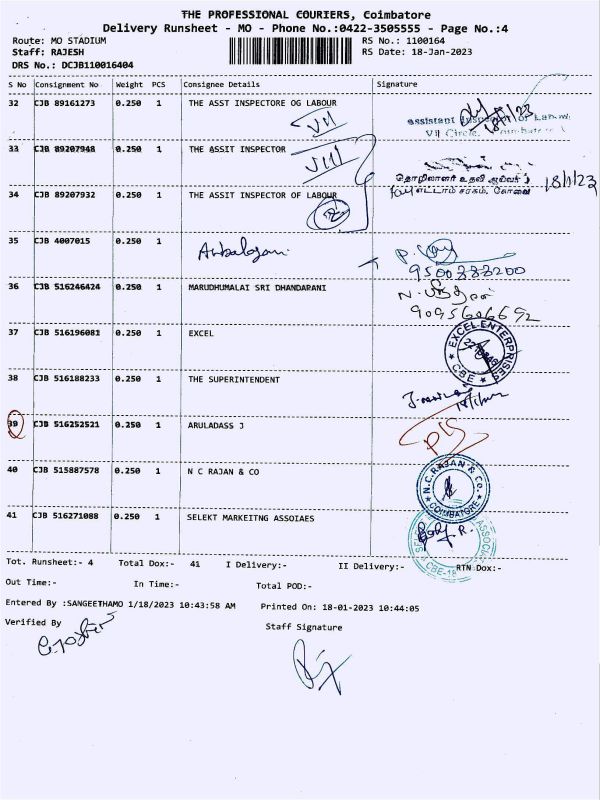 THE PROFESSIONAL COURIERS, Coimbatore
Delivery Runsheet - MO - Phone No.:0422-3505555 - Page No.:4
Route: MO STADIUM
RS No.: 1100164
Staff: RAJESH
RS Date: 18-Jan-2023
DRS No.: DCJB110016404
S No Consignment No Weight PCS Consignee Details Signature
32 CJB 89161273 0.250 1 THE ASST INSPECTORE OG LABOUR
VII
18/1/23
Assistant Inspector of Labour
VII Circle, Coimbatore
33 CJB 89207948 0.250 1 THE ASSIT INSPECTOR
VIII
தொழிலாளர் உதவி ஆய்வர்
எட்டாம் சரகம், கோவை
18/1/23
34 CJB 89207932 0.250 1 THE ASSIT INSPECTOR OF LABOUR
35 CJB 4007015 0.250 1
9500333200
36 CJB 516246424 0.250 1 MARUDHUMALAI SRI DHANDARANI
9095606692
37 CJB 516196081 0.250 1 EXCEL
EXCEL ENTERPRISES
CBE
38 CJB 516188233 0.250 1 THE SUPERINTENDENT
39 CJB 516252521 0.250 1 ARULADASS J
40 CJB 515887578 0.250 1 N C RAJAN & CO
N.C.RAJAN & Co.
COIMBATORE
41 CJB 516271088 0.250 1 SELEKT MARKEITNG ASSOIAES
CBE-18
Tot. Runsheet:- 4 Total Dox:- 41 I Delivery:- II Delivery:- RTN Dox:-
Out Time:- In Time:- Total POD:-
Entered By :SANGEETHAMO 1/18/2023 10:43:58 AM Printed On: 18-01-2023 10:44:05
Verified By
Staff Signature